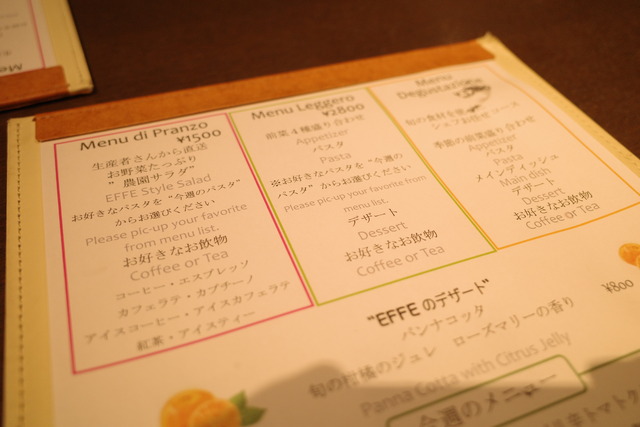 Menu di Pranzo
¥1500
生産者さんから直送
お野菜たっぷり
"農園サラダ"
EFFE Style Salad
お好きなパスタを"今週のパスタ"
からお選びください
Please pic-up your favorite
from menu list.
お好きなお飲物
Coffee or Tea
コーヒー・エスプレッソ
カフェラテ・カプチーノ
アイスコーヒー・アイスカフェラテ
紅茶・アイスティー
Menu Leggero
¥2800
前菜4種盛り合わせ
Appetizer
パスタ
Pasta
※お好きなパスタを"今週の
パスタ"からお選びください
Please pic-up your favorite from
menu list.
デザート
Dessert
お好きなお飲物
Coffee or Tea
Menu
Degustazione
旬の食材を使った
シェフお任せコース
季節の前菜盛り合わせ
Appetizer
パスタ
Pasta
メインディッシュ
Main dish
デザート
Dessert
お好きなお飲物
Coffee or Tea
"EFFEのデザート"
¥800
パンナコッタ
旬の柑橘のジュレ ローズマリーの香り
Panna Cotta with Citrus Jelly
今週のメニュー